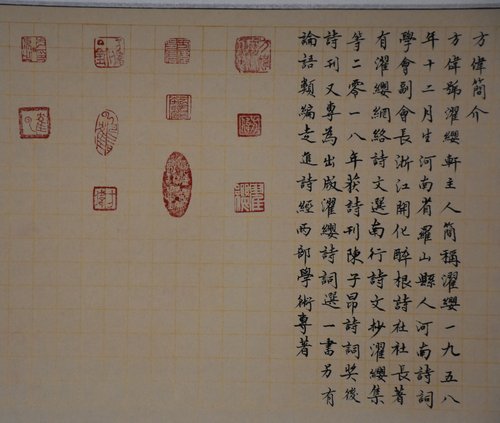 方偉簡介
方偉號濯纓軒主人簡稱濯纓一九五八
年十二月生河南省羅山縣人河南詩詞
學會副會長浙江開化醉根詩社社長著
有濯纓網絡詩文選南行詩文抄濯纓集
等二零一八年获詩刊陳子昂詩詞奖後
詩刊又專為出版濯纓詩詞選一書另有
論語類編走進詩經两部學術專著